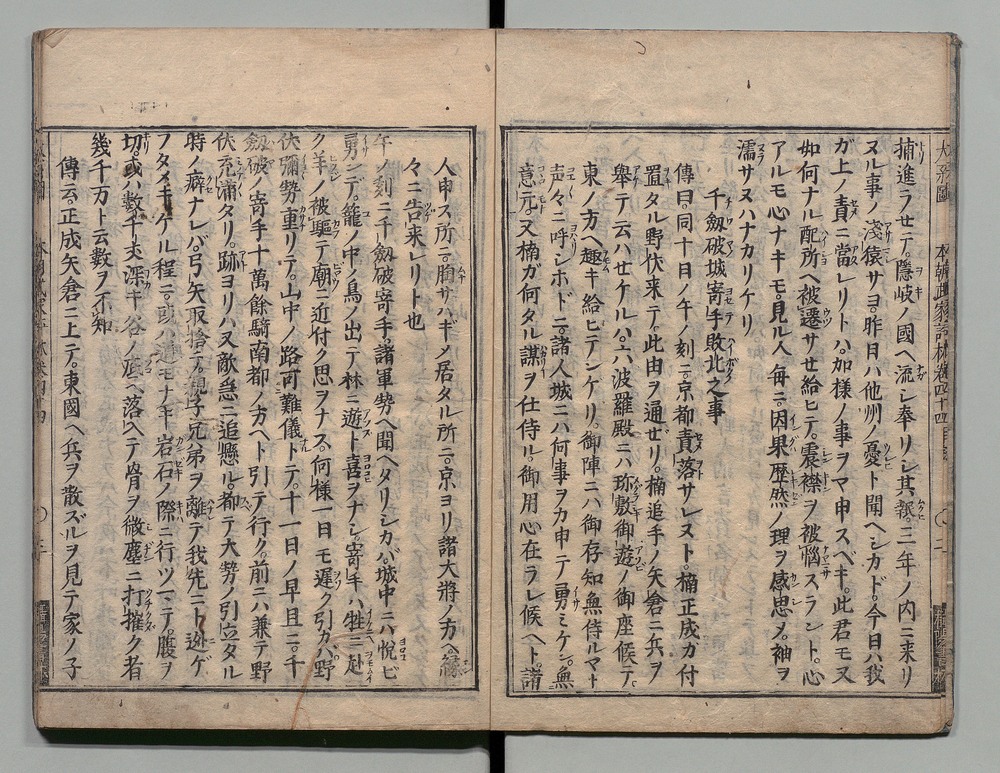 捕進ラセテ。隠岐ノ國ヘ流シ奉リシ其報。三年ノ内ニ来リ
ヌル事ノ淺猿サヨ。昨日ハ他州ノ憂ト聞ヘシカド。今日ハ我
ガ上ノ責ニ當レリトハ。加様ノ事ヲマ申スベキ。此君モ又
如何ナル配所ヘ被遷サセ給ヒテ。震襟ヲ被惱スラント。心
アルモ心ナキモ。見ル人毎ニ。因果歴然ノ理ヲ感思メ。袖ヲ
濡サヌハナカリケリ
千劔破城寄手敗北之事
傳曰。同十日ノ午ノ刻ニ。京都責落サレヌト。楠正成ガ付
置タル野伏来テ。此由ヲ通セリ。楠追手ノ矢倉ニ兵ヲ
舉テ云ハセケルハ。六波羅殿ニハ珎敷御遊ノ御座候テ
東ノ方ヘ趣キ給ヒテンゲリ。御陣ニハ御存知無侍ルマト
声々ニ呼シホドニ。諸人城ニハ何事ヲカ申テ勇ミケン。無
意元。又楠ガ何タル謀ヲ仕侍ル。御用心在ラレ候ヘト。諸
人申ス所ニ。胸サハギノ居タル所ニ。京ヨリ諸大將ノ方ヘ
々ニ告来レリト也
午ノ剋ニ千劔破寄手。諸軍勢ヘ聞ヘタリシカバ。城中ニハ悦ビ
勇ンデ。籠ノ中ノ鳥ノ出テ林ニ遊ト喜ヲナシ。寄手ハ牲ニ赴
ク羊ノ被驅テ。廟ニ近付ク思ヲナス。何様一日モ遅ク引カバ。野
伏彌勢重リテ。山中ノ路可難儀トテ。十一日ノ早旦ニ。千
劔破ノ寄手十萬餘騎南都ノ方ヘト引テ行ク。前ニハ兼テ野
伏充滿タリ。跡ヨリハ又敵急ニ追懸ル。都テ大勢ノ引立タル
時ノ癖ナレバ。弓矢取捨テ。親子兄弟ヲ離テ我先ニト迯ゲ
フタメキケル程ニ。或ハ道モナキ岩石ノ際ニ行ツマテ。腹ヲ
切。或ハ數千丈深キ谷ノ底ヘ落ヘテ骨ヲ微塵ニ打摧ク者
幾千万ト云數ヲ不知
傳云。正成矢倉ニ上テ。東國ヘ兵ヲ散ズルヲ見テ家ノ子